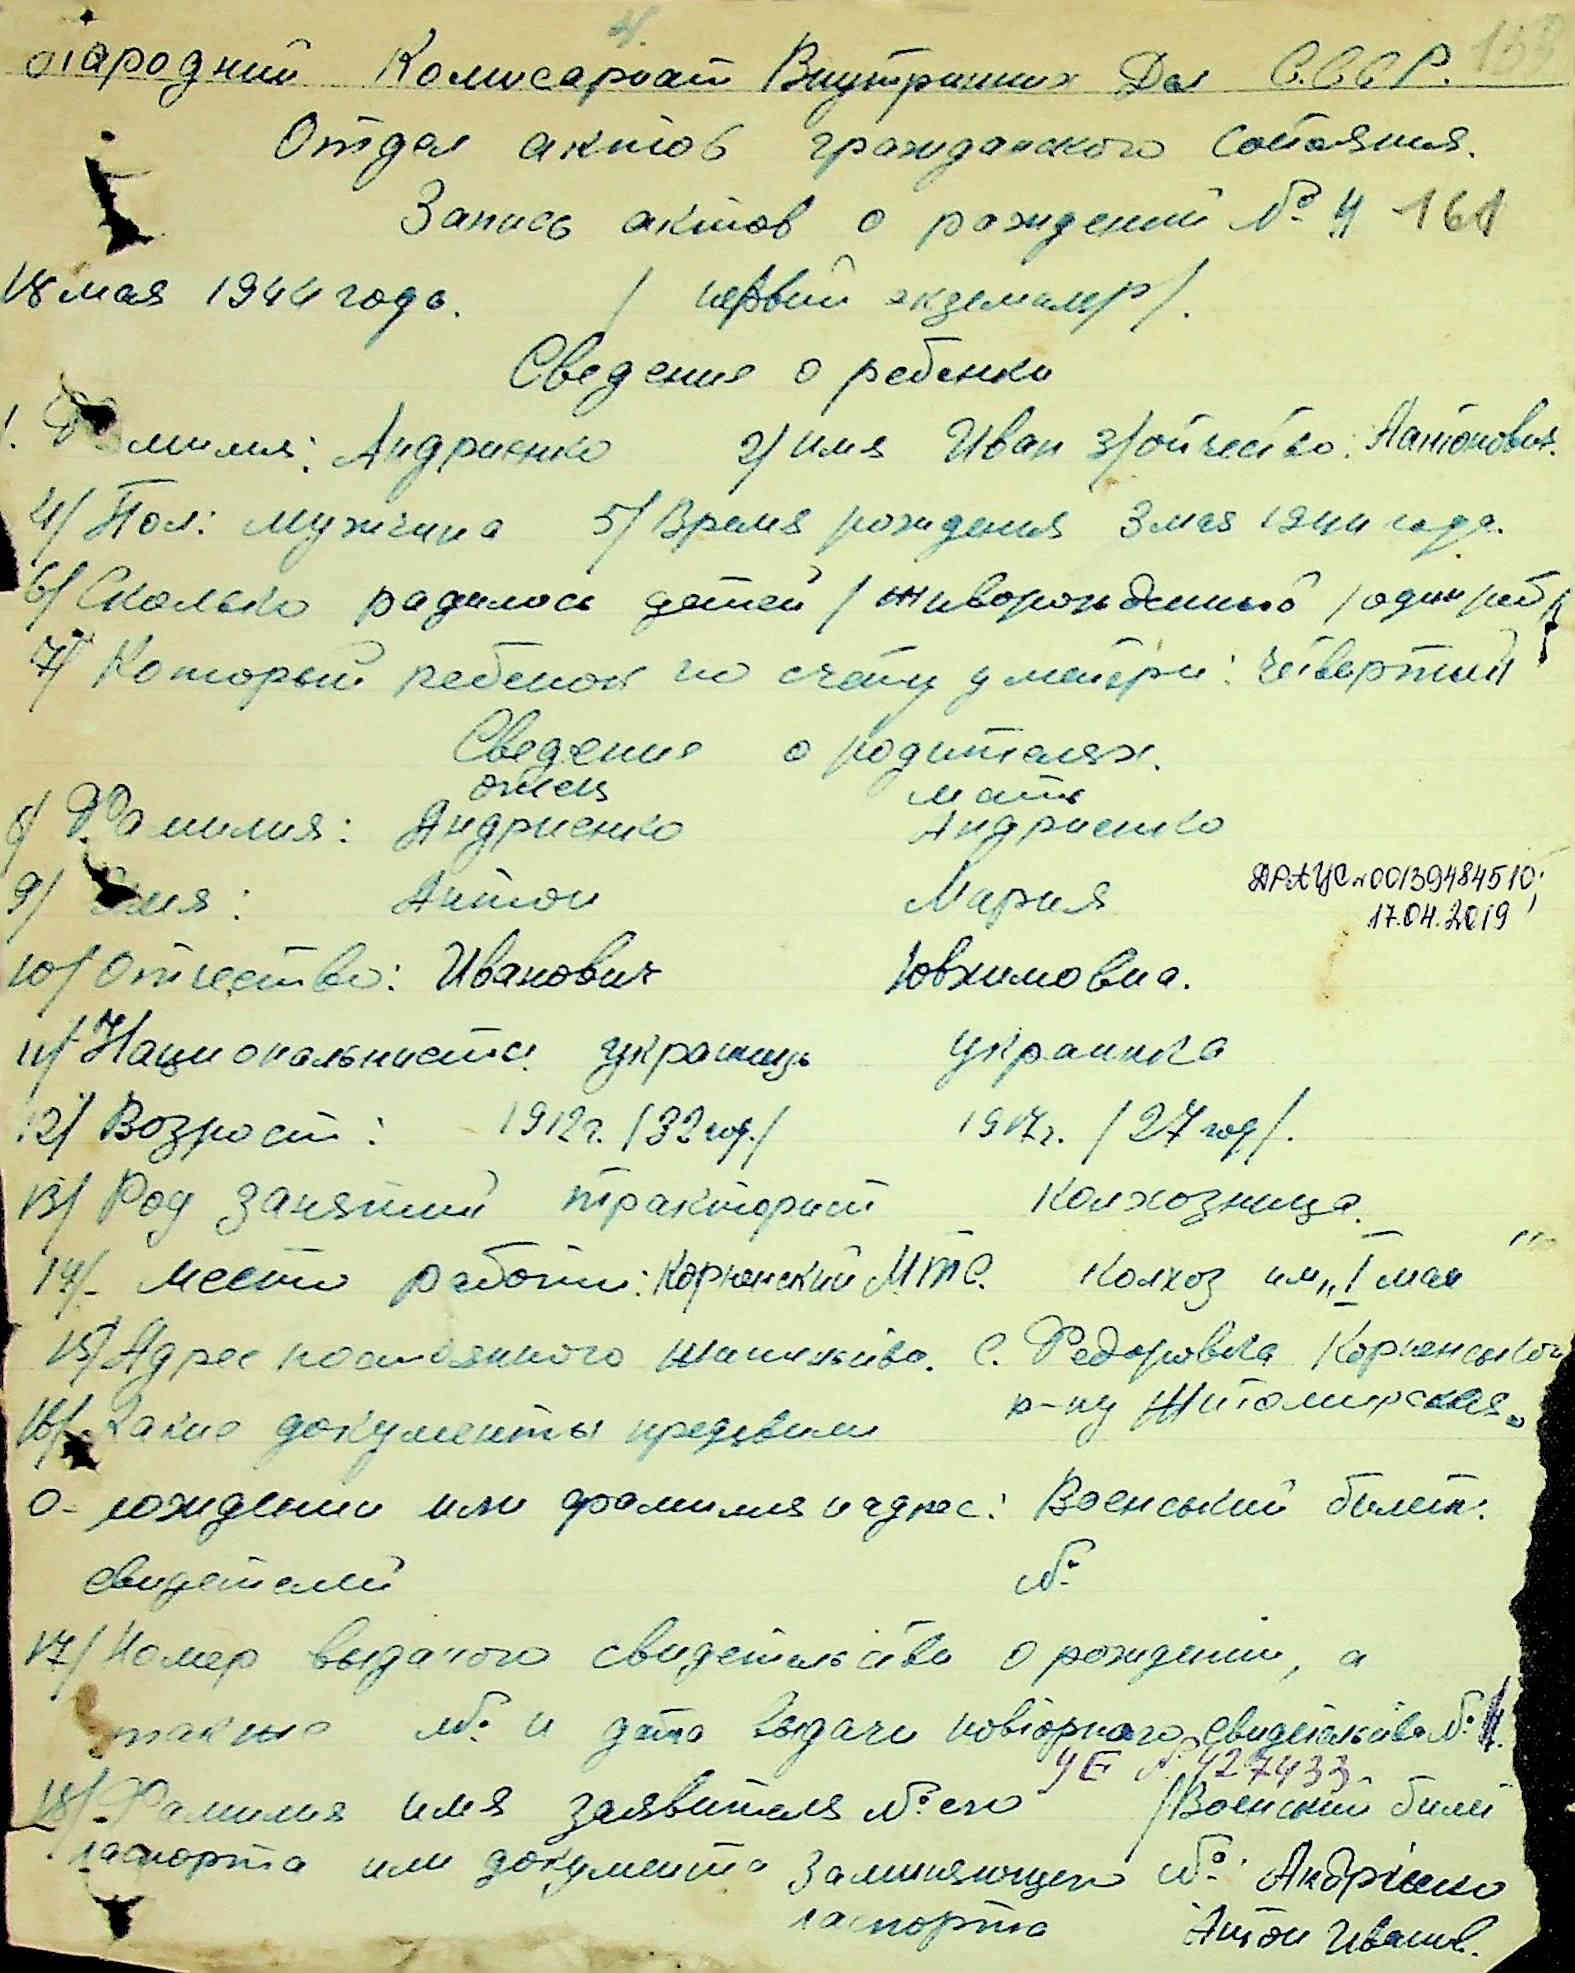 4.
133
Народний Комисариат Внутриних Дел С.С.С.Р.
Отдел актов гражданского состояния.
Запись актов о рождений № 4 161
18 мая 1944 года. / первий экземпляр/.
Сведения о ребенки
1. Фамилия: Андриенко 2/ имя Иван 3/ отчество: Антонович.
4/ Пол: мужчина 5/ Время рождения 3 мая 1944 года.
6/ Сколько радилось детей / живорожденный / один
7/ Который ребенок по счету у матери: четвертий
Сведения о родителях.
отец мать
8/ Фамилия: Андриенко Андриенко
9/ Имя: Антон Мария
ДРАЦС №00139484510;
17.04.2019
10/ Отчество: Иванович Ювхимовна.
11/ Национальность: украинць украинка
12/ Возрост: 1912г. /32 год./ 1917г. /27 год/.
13/ Род занятий тракторист колхозница.
14/. Место работи: Корненский МТС. Колхоз им „I мая"
15/ Адрес постоянного жительства. с. Федоровка Корненського
р-ну Житомирская.
16/ Какие документы предявили
о рождении или фамилия и адрес: Военський билет:
свидетелей №
17/ Номер выданого свидетельства о рождении, а
также № и дата выдачи повторного свидетельства № 4.
УЕ № 427433
18/ Фамилия имя заявителя № его /Военский билет
паспорта или документа заминяющего №: Андрієнко
паспорта Антон Иванов.